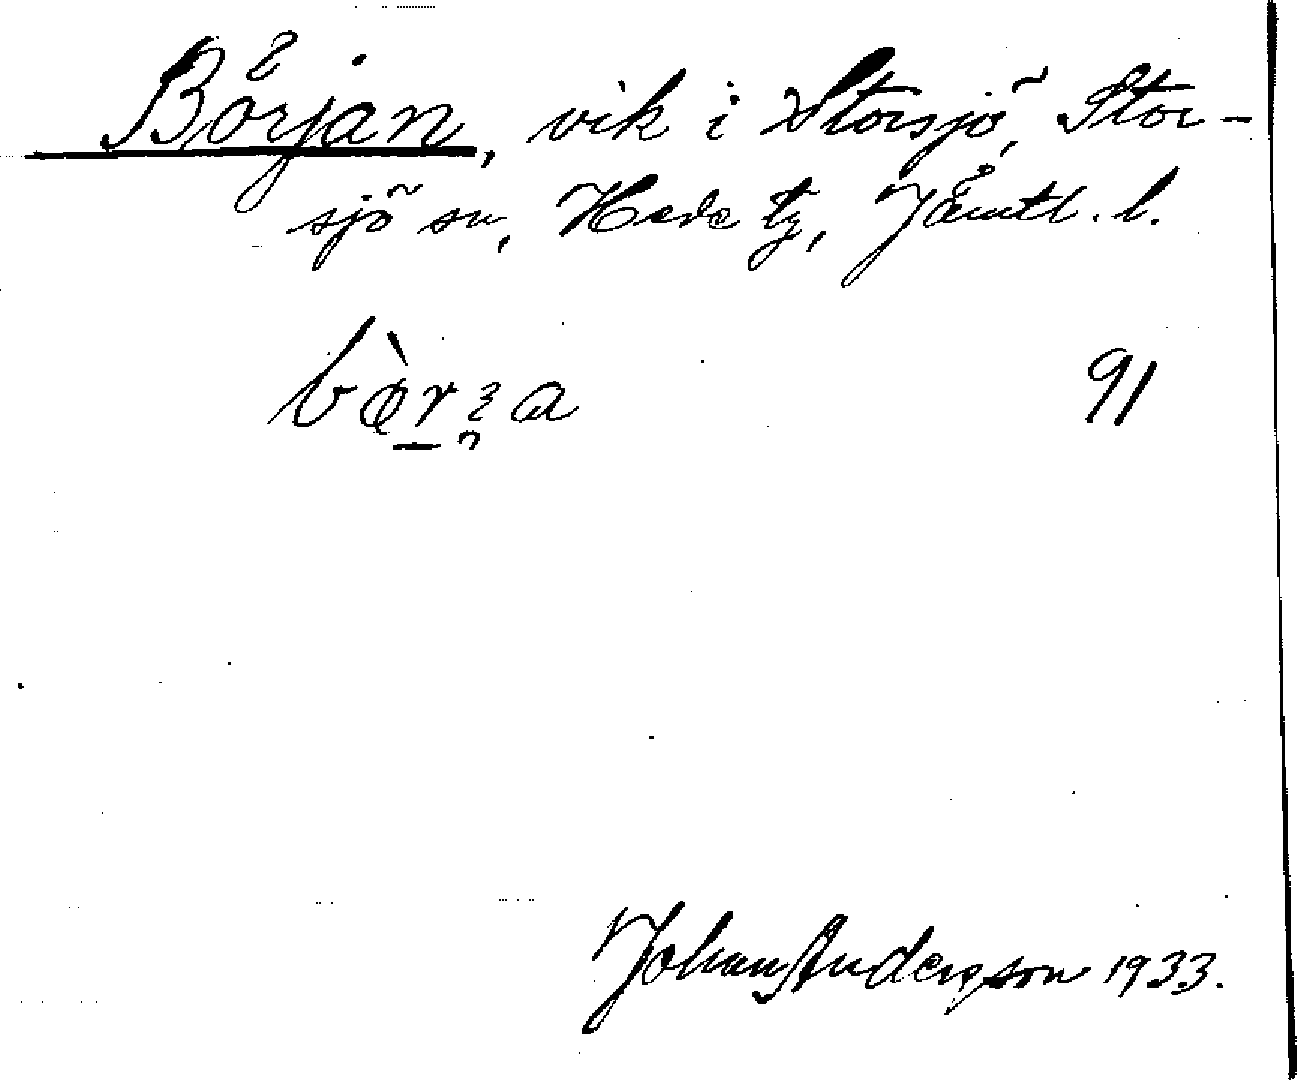 Början, vik i Storsjö, Stor-
sjö sn, Hede tg, Jämtl. l.
bø̀rʒa 91
Johan Andersson 1933.